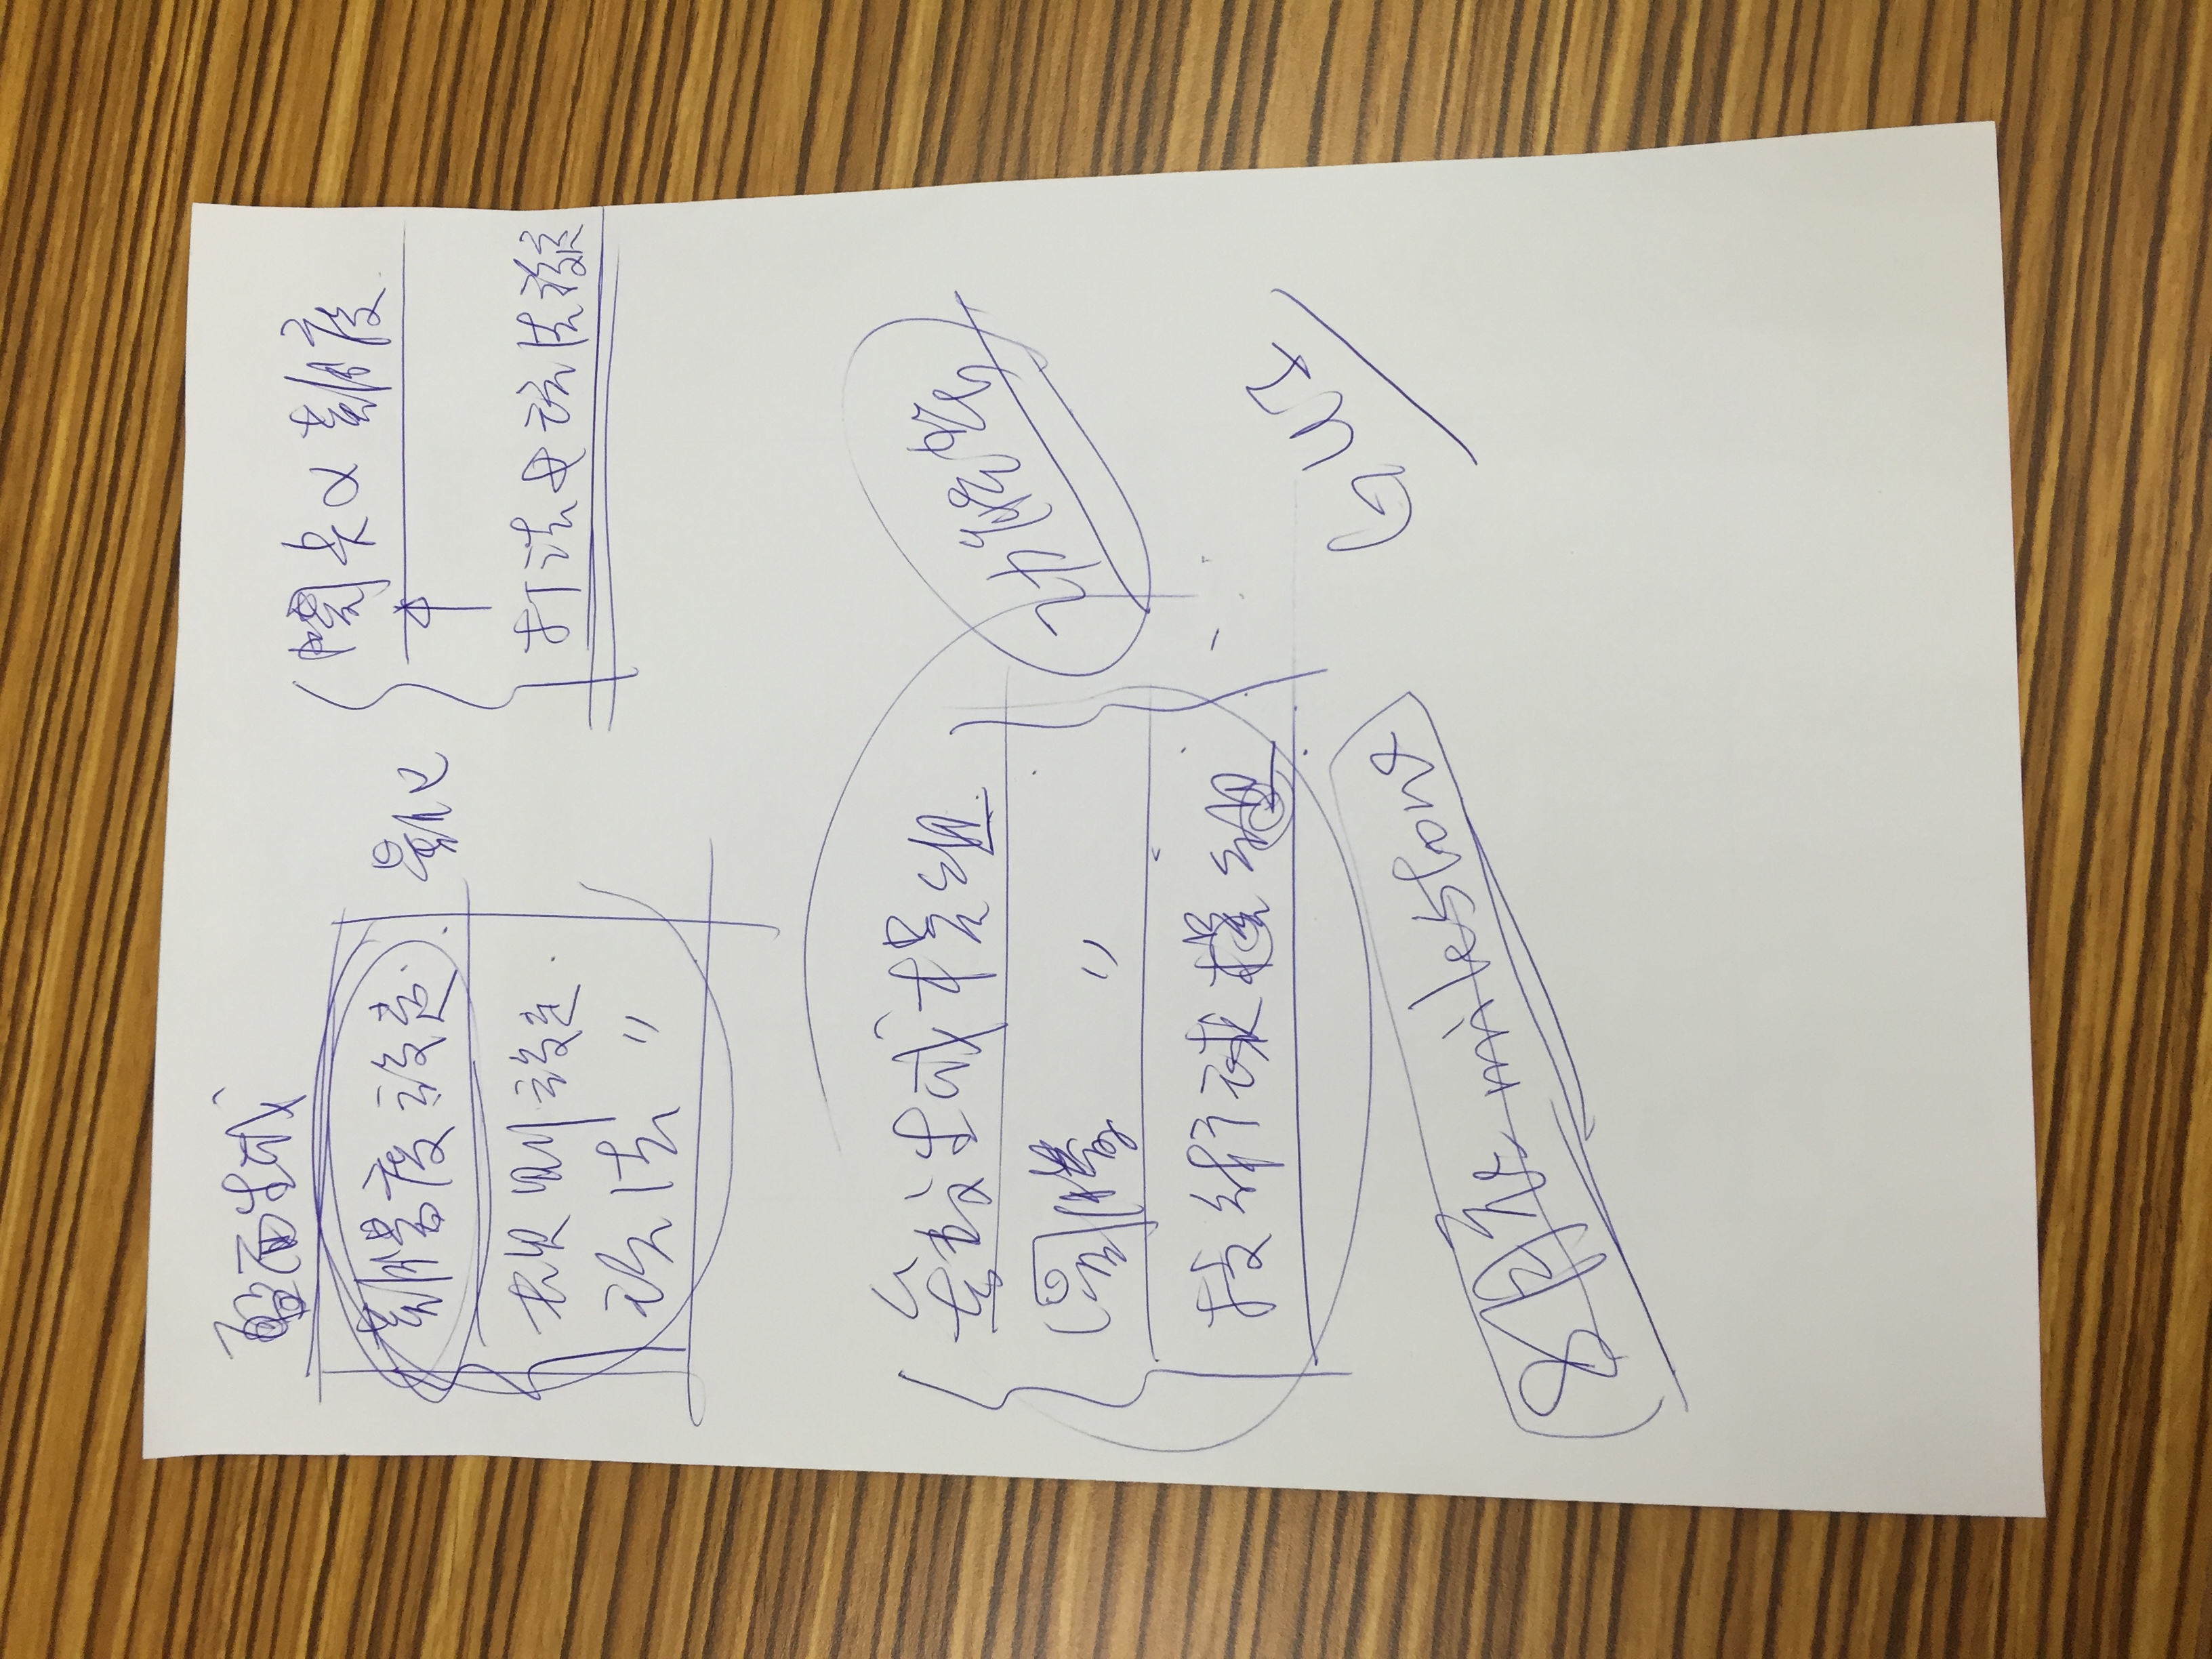 盤面生成
難易度設定
量化
規則設定
玩法 〃
關卡 難度
打法 玩法設定
參數生成模組
圖騰 〃
技術球模組
功能性
GUI
8月底 milestone